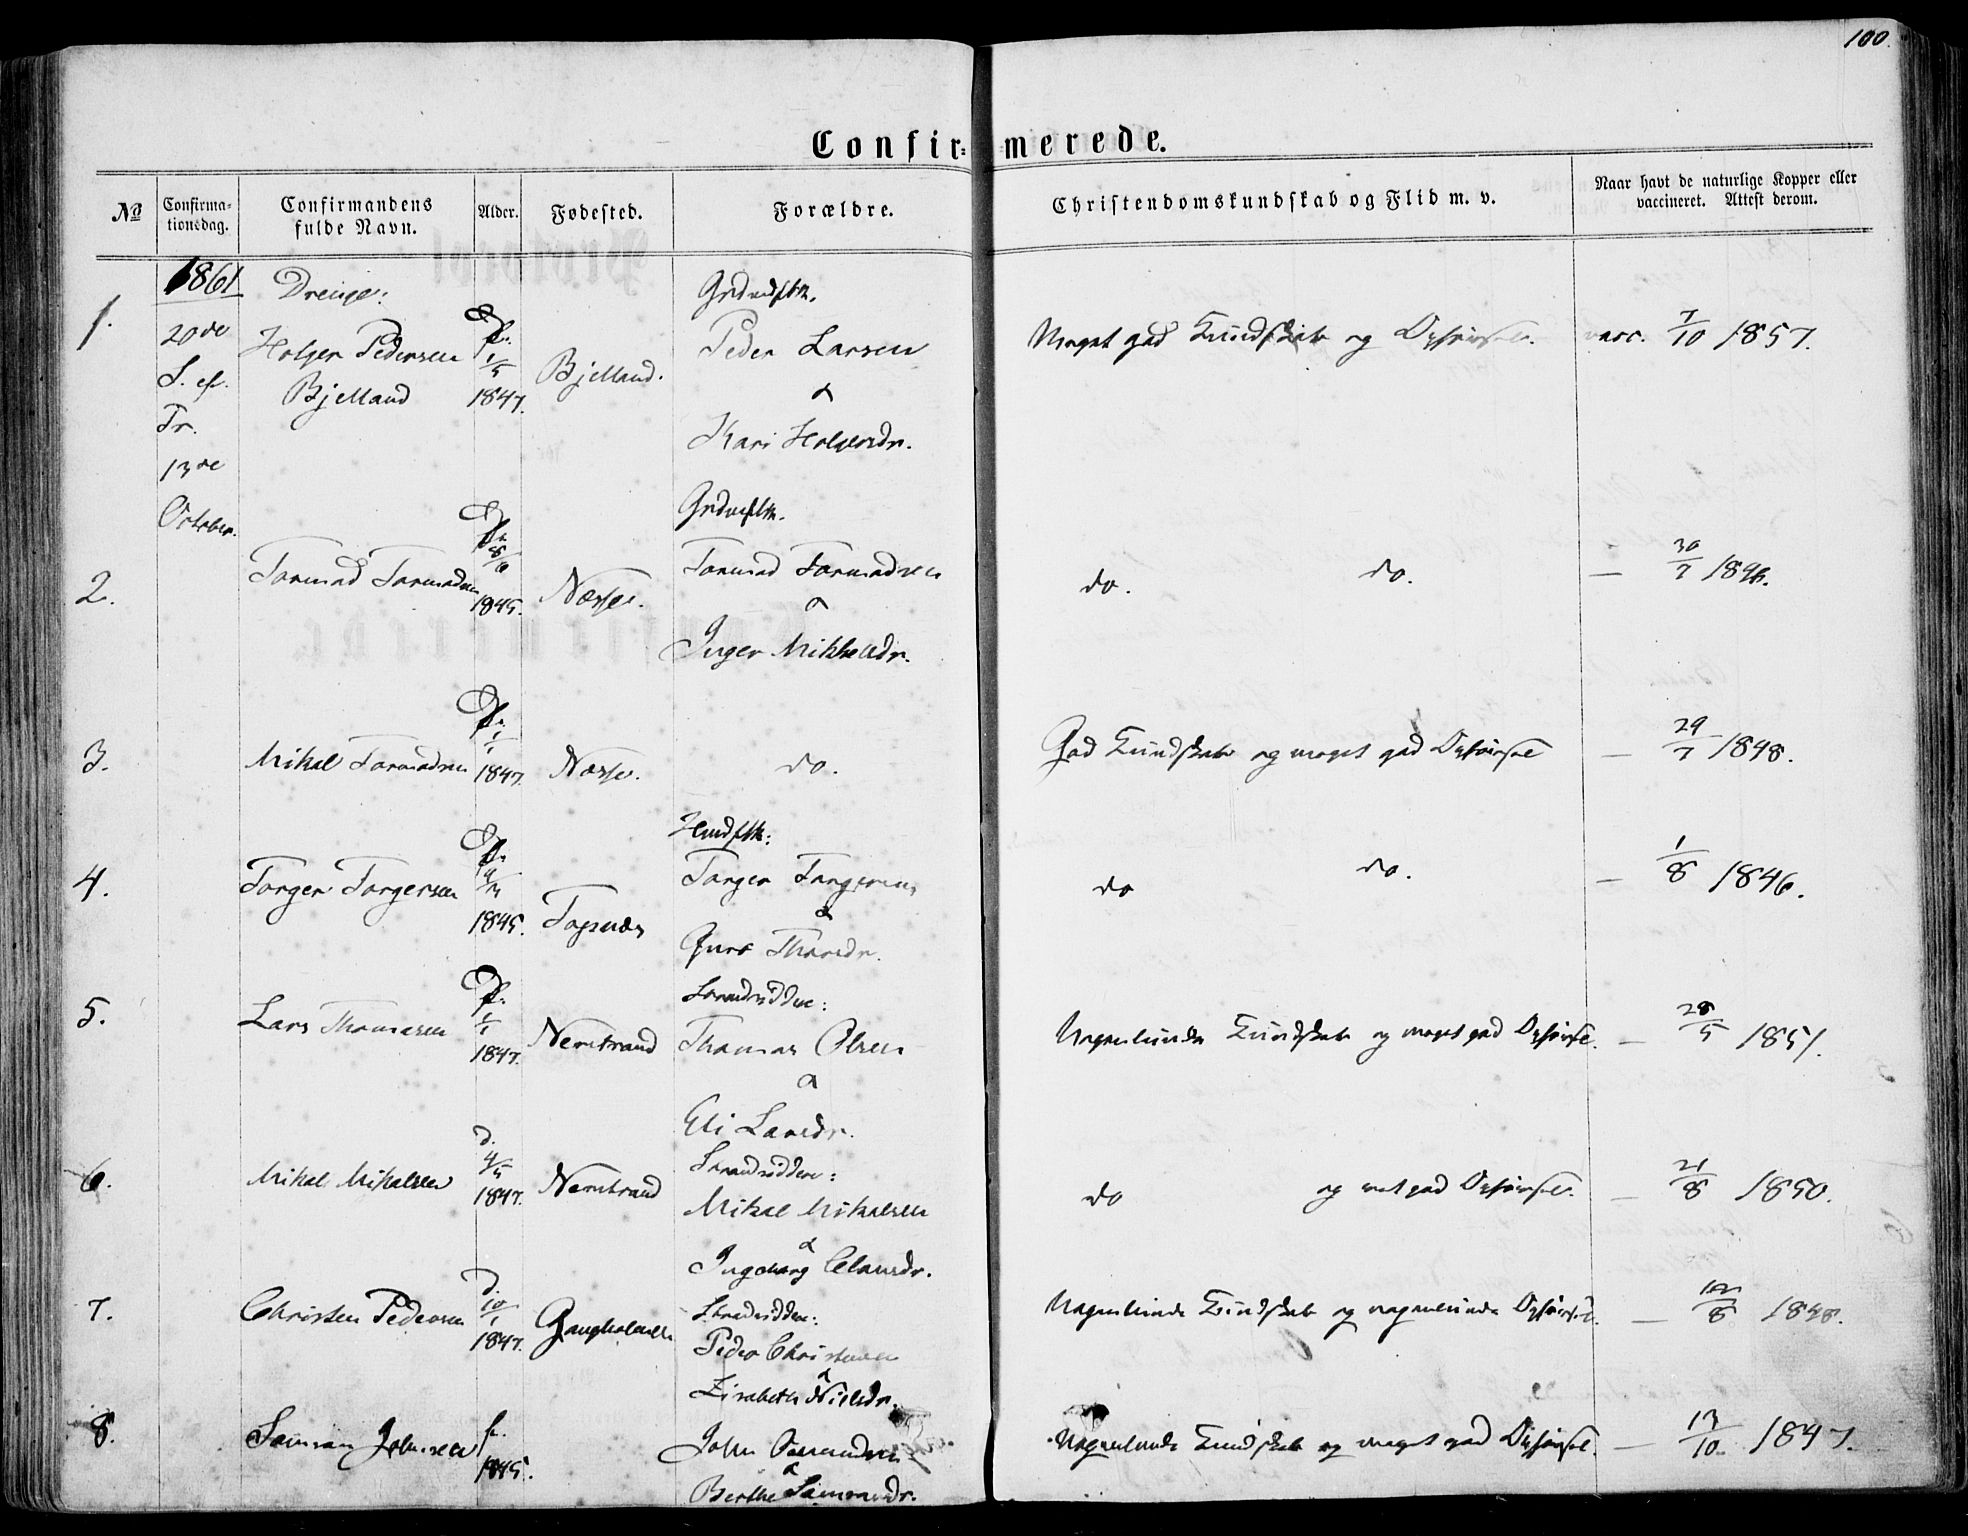 100.
Confir= merede.
No
Confirma-
tionsdag.
Confirmandens
fulde Navn.
Alder.
Fødested.
Forældre.
Christendomskundskab og Flid m. v.
Naar havt de naturlige Kopper eller
vaccineret. Attest derom.
1861
Drenge:
1.
20de
S. ef.
Tr.
13de
October.
Holger Pedersen
Bjelland
1/5
1847.
Bjelland.
Peder Larsen
&
Kari Holgersdr.
Meget god Kundskab og Opførsel.
vacc. 7/10 1857.
2.
Tormod Tormodsen
1845.
Næsse.
Tormod Tormodsen
&
Inger Mikkelsdr.
do. do.
— 30/7 1846.
3.
Mikal Tormodsen
1/1
1847.
Næsse.
do.
God Kundskab og meget god Opførsel
— 29/7 1848.
4.
Torger Torgersen
1845.
Torger Torgersen
&
Guro Thorsdr.
do do.
— 1/8 1846.
5.
Lars Thomasen
1/1
1847.
Nerstrand
Strandsidder:
Thomas Olsen
&
Eli Larsdr.
Nogenlunde Kundskab og meget god Opførsel.
— 28/5 1851.
6.
Mikal Mikalsen
d.
4/5
1847.
Nerstrand
Strandsidder:
Mikal Mikalsen
&
Ingeborg Clausdr.
do og god Opførsel.
— 21/8 1850.
7.
Christen Pedersen
d.
10/1
1847.
Strandsidder:
Peder Christensen
&
Lisabeth Nielsdr.
Nogenlunde Kundskab og nogenlunde Opførsel.
— 1848.
8.
Samson Johnsen
f.
1845.
John
&
Berthe Samsonsdr.
Nogenlunde Kundskab og meget god Opførsel.
— 13/10 1847.